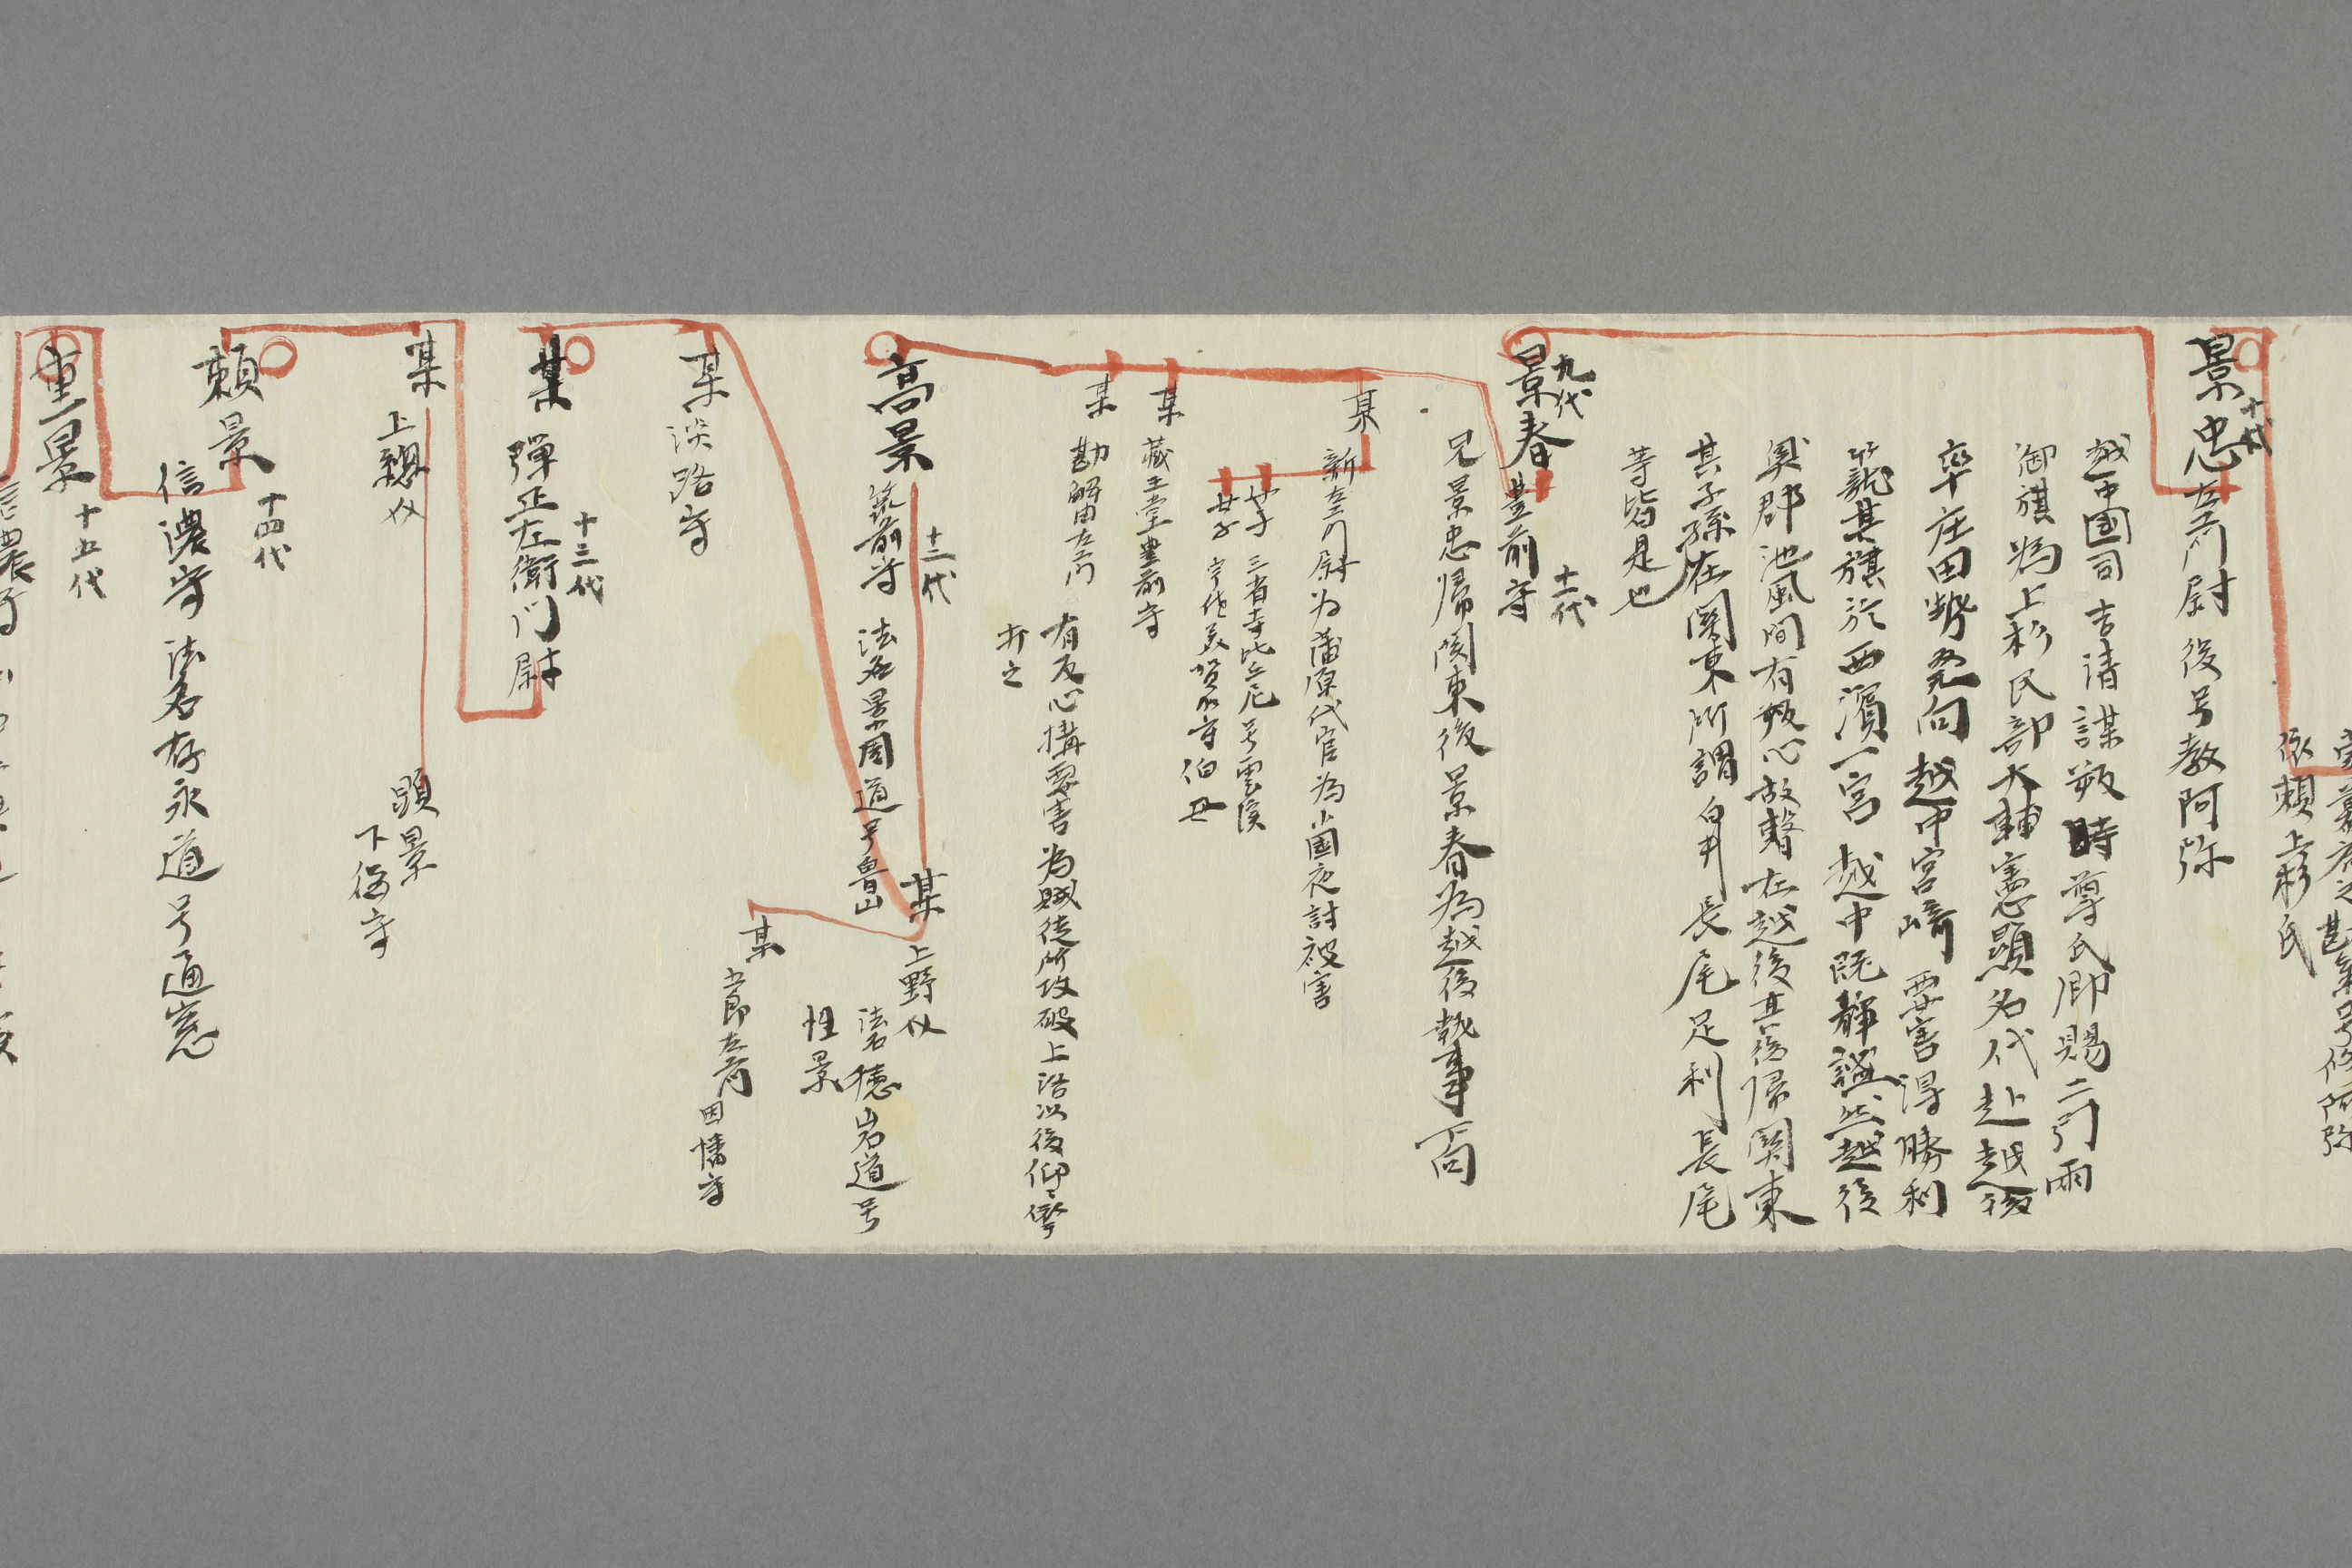 依頼上杦氏
景忠 左衛門尉 後号教阿弥
十代
越中国司吉清謀叛時尊氏即賜二引両
御旗為上杉民部大輔憲顕名代赴越後
率庄田勢発向越中宮崎要害得勝利
籠其旗於西濱一宮越中既静謐然越後
奥郡池風間有叛心故暫在越後其後帰関東
其子孫在関東所謂白井長尾足利長尾
等皆是也
九代
景春 豊前守
十一代
兄景忠帰関東後景春為越後執事下向
某 新左衛門尉为蒲原代官為菌夜討被害
女子 三省寺比丘尼号雲渓
女子 宇佐美賀
守伯母
某 蔵王堂豊前守
某 勘解由左衛門 有反心搆要害為賊徒所攻破上洛以後仰
弁之
高景 筑前守 法名景周道号魯山
十二代
某 上野介
法名徳岩道号
性景
某 五郎左衛門 因幡守
某 淡路守
某 弾正左衛門尉
十三代
某 上総介
顕景
下総守
頼景
十四代
信濃守 法名存永道号通窓
重景 十五代
信濃守